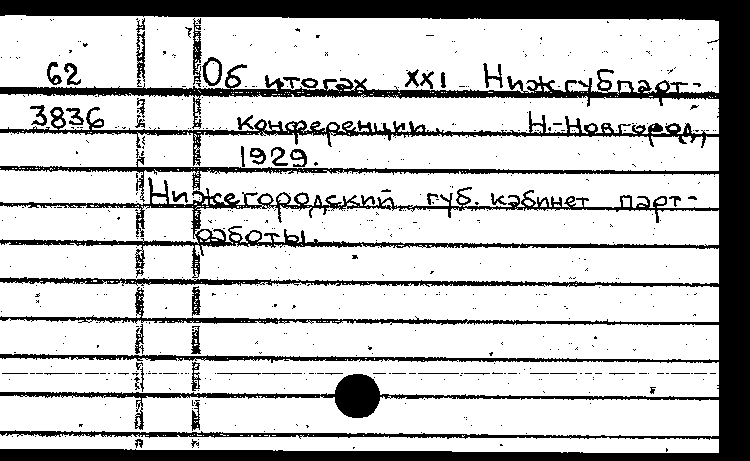 62 Об итогах XXI Нижгубпарт-
3836 конференции. Н-Новгород,
1929.
Нижегородский губ. кабинет парт-
работы.